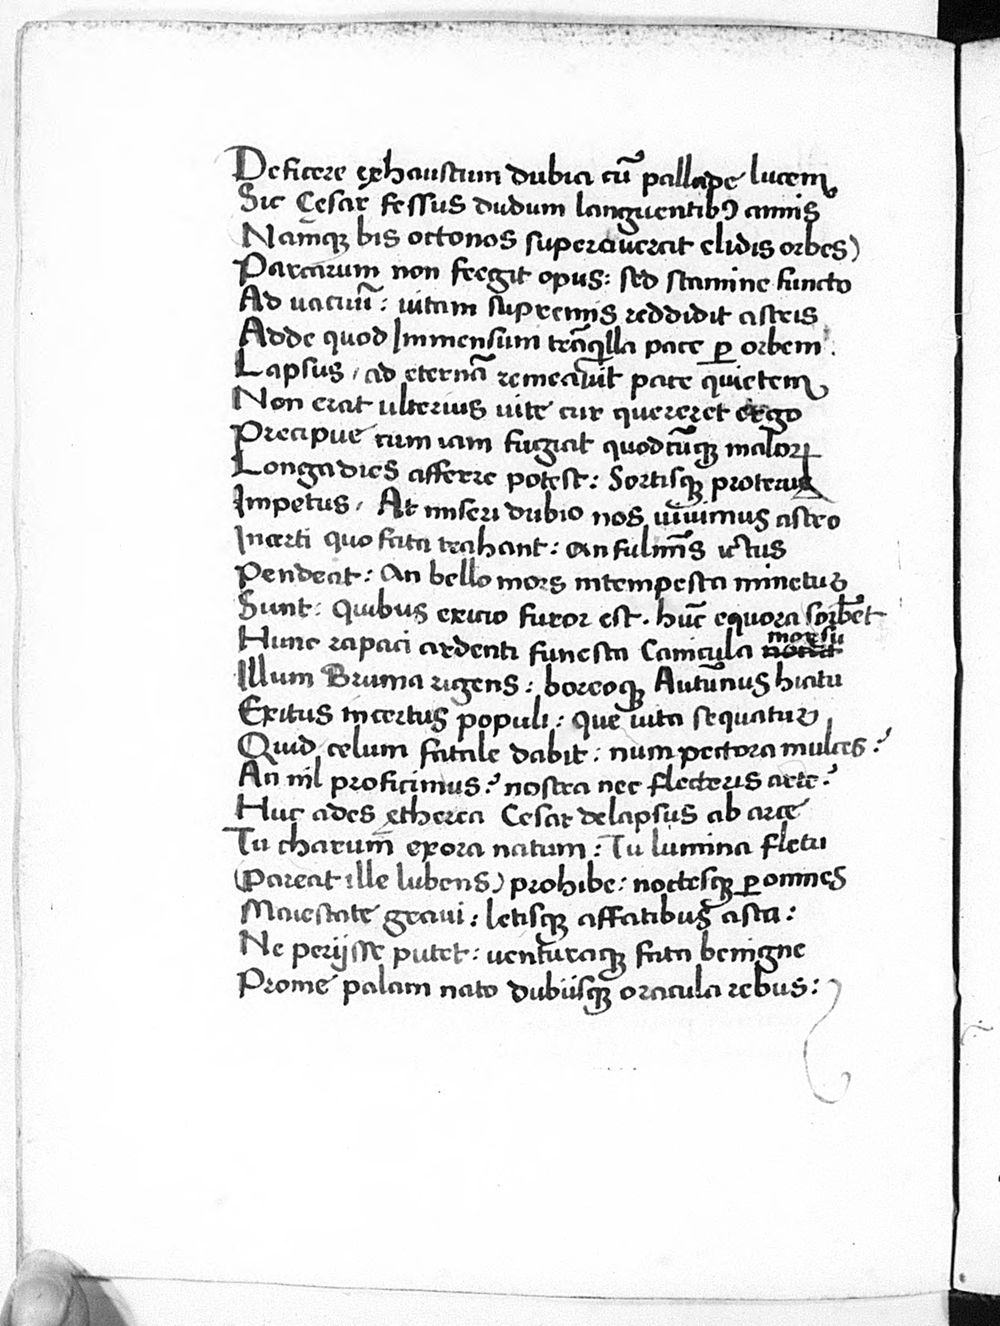 Deficere exhaustum dubia cū pallade lucem
Sic Cesar fessus dudum languentibꝰ annis
Namꝙ bis octonos superauerat elidis orbes)
Parcarum non fregit opus: sed stamine functo
Ad uacuū: uitam supremis reddidit astris
Adde quod Immensum trāqlla pace ꝑ orbem.
Lapsus, ad eternā remeauit pace quietem
Non erat ulterius uite cur quereret ergo
Precipue cum iam fugiat quodcūqꝫ maloꝝ
Longa dies afferre potest: Sortisqꝫ proterus
Impetus, At miseri dubio nos uiuimus astro
Incerti quo fata trahant: an fulmīs ictus
Pendeat: An bello mors intempesta minetur
Sunt: quibus exicio furor est. hūc equora sorbēt
Hunc rapaci ardenti funesta Canicula morsu
Illum Bruma rigens: boreoqꝫ Autūnus hiatu
Exitus incertus populi: que uita sequatur
Quid celum fatale dabit: num pectora mulces?
An nil proficimus? nostra nec flecteris arte?
Huc ades etherea Cesar delapsus ab arce
Tu charum exora natum: Tu lumina fletu
(Pareat ille lubens) prohibe: noctesqꝫ ꝑ omnes
Maiestate graui: letisqꝫ affatibus asta:
Ne perijsse putet: uenturaqꝫ fata benigne
Prome palam nato dubiisqꝫ oracula rebus: